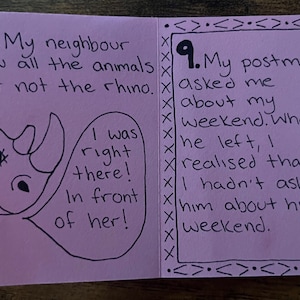 My neighbour
all the animals
not the rhino.
I was
right
there!
In front
of her!
9. My
asked me
about my
weekend.
he left, I
realised
I hadn't
him about
weekend.